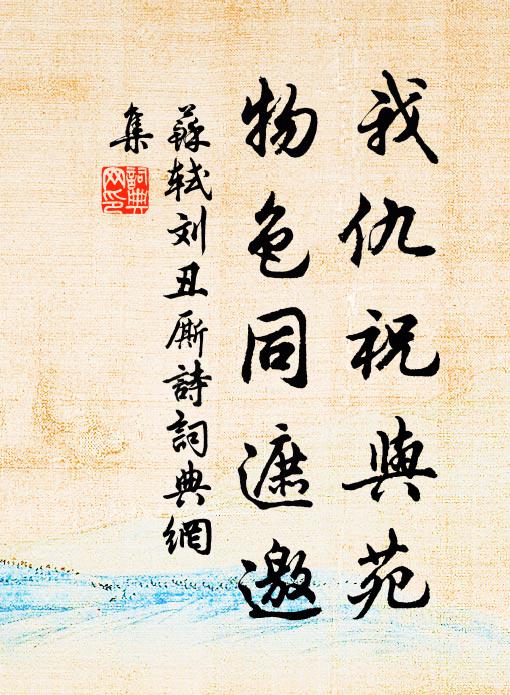 我仇祝與苑
物色同遮邀
蘇轼刘丑厮詩詞典網
集
詞典
网印